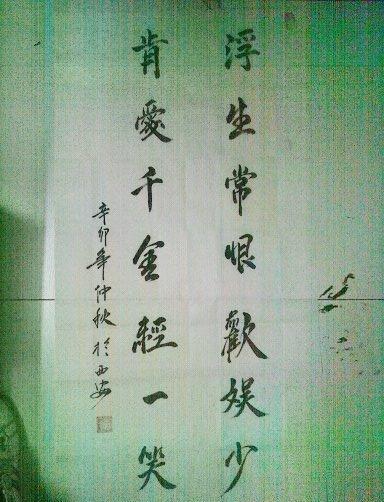 浮生常恨歡娛少
肯愛千金輕一笑
辛卯年仲秋於西安